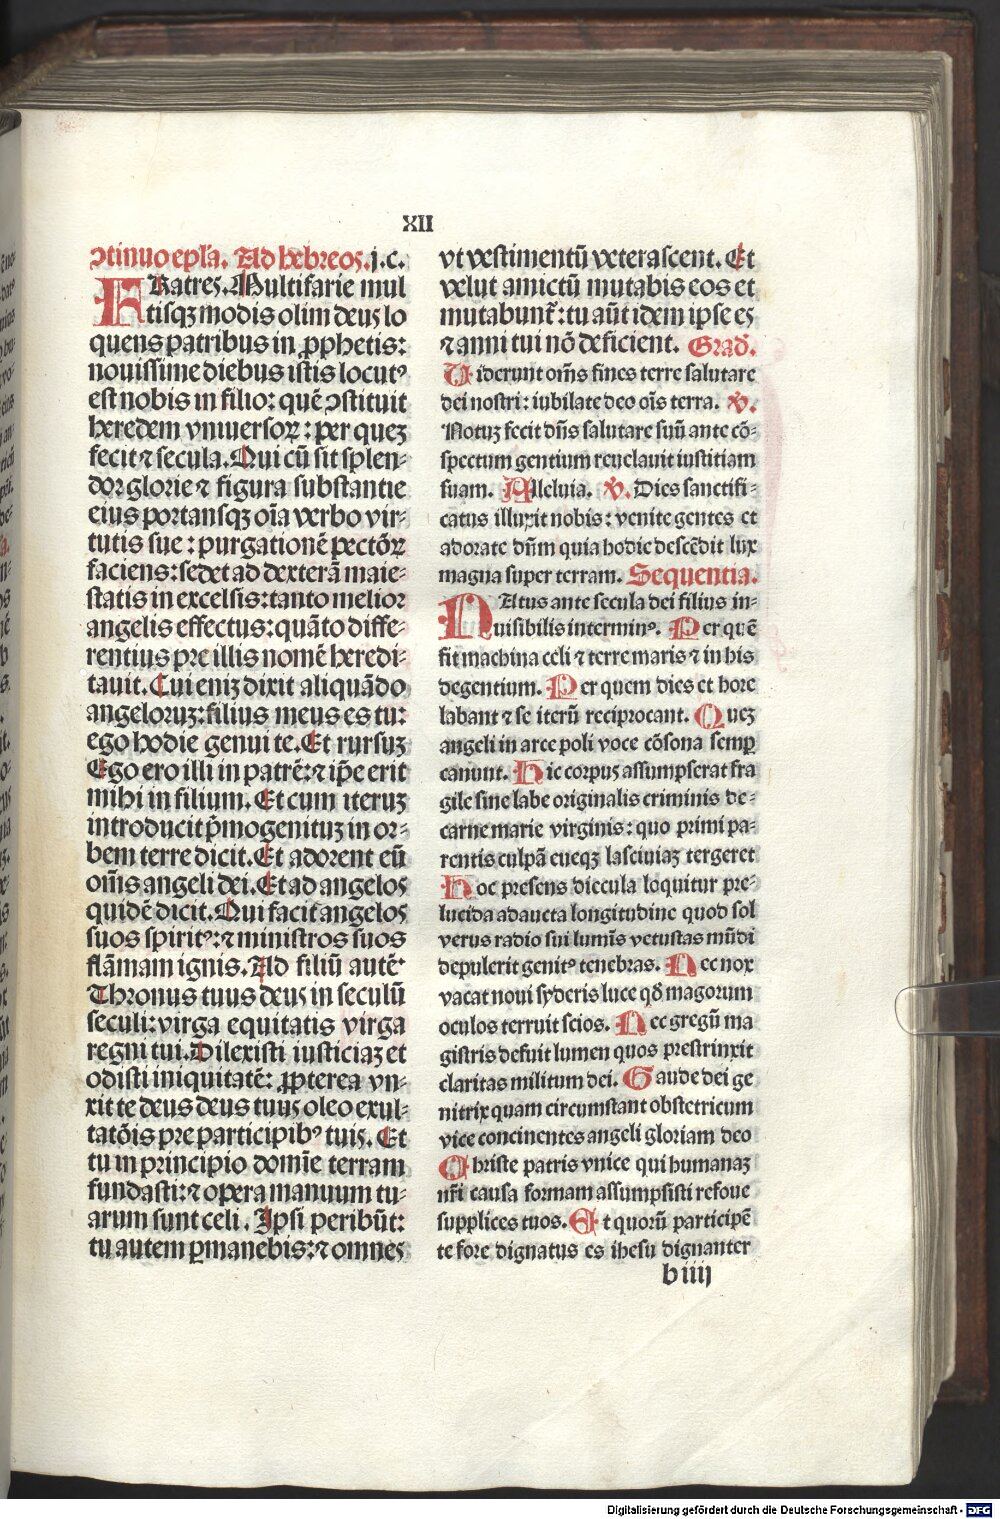 XII
ↄtinuo ep̄la. Ad hebreos. j. c.
FRatres. Multifarie mul
tisqꝫ modis olim deus lo
quens patribus in ꝓphetis:
nouissime diebus istis locutꝰ
est nobis in filio: quē ↄstituit
heredem vniuersoꝝ: per queꝫ
fecit ⁊ secula. Qui cū sit splen⸗
dor glorie ⁊ figura substantie
eius portansqꝫ oīa verbo vir⸗
tutis sue: purgationē pectōꝝ
faciens: sedet ad dexterā maie⸗
statis in excelsis: tanto melior
angelis effectus: quāto diffe⸗
rentius pre illis nomē heredi⸗
tauit. Cui eniꝫ dixit aliquādo
angeloruꝫ: filius meus es tu:
ego hodie genui te. Et rursuꝫ
Ego ero illi in patrē: ⁊ ip̄e erit
mihi in filium. Et cum iteruꝫ
introducit p̄mogenituꝫ in or⸗
bem terre dicit. Et adorent eū
om̄s angeli dei. Et ad angelos
quidē dicit. Qui facit angelos
suos spiritꝰ: ⁊ ministros suos
flāmam ignis. Ad filiū autē
Thronus tuus deus in seculū
seculi: virga equitatis virga
regni tui. Dilexisti iusticiaꝫ et
odisti iniquitatē: ꝓpterea vn⸗
xit te deus deus tuus oleo exul⸗
tatōis pre participibꝰ tuis. Et
tu in principio domīe terram
fundasti: ⁊ opera manuum tu⸗
arum sunt celi. Ipsi peribūt:
tu autem ꝑmanebis: ⁊ omnes
vt vestimentū veterascent. Et
velut amictū mutabis eos et
mutabunt᷑: tu aūt idem ipse es
⁊ anni tui nō deficient. Grad̄.
Viderunt om̄s fines terre salutare
dei nostri: iubilate deo oīs terra. ℣.
Notuꝫ fecit dn̄s salutare suū ante cō⸗
spectum gentium reuelauit iustitiam
suam. Alleluia. ℣. Dies sanctifi⸗
catus illuxit nobis: venite gentes et
adorate dn̄m quia hodie descēdit lux
magna super terram. Sequentia.
NAtus ante secula dei filius in⸗
uisibilis interminꝰ. Per quē
fit machina celi ⁊ terre maris ⁊ in his
degentium. Per quem dies et hore
labant ⁊ se iterū reciprocant. Queꝫ
angeli in arce poli voce cōsona semꝑ
canunt. Hic corpus assumpserat fra
gile sine labe originalis criminis de⸗
carne marie virginis: quo primi pa⸗
rentis culpā eueqꝫ lasciuiaꝫ tergeret
Hoc presens diecula loquitur pre⸗
lucida adaucta longitudine quod sol
verus radio sui lumīs vetustas mūdi
depulerit genitꝰ tenebras. Nec nox
vacat noui syderis luce qd̄ magorum
oculos terruit scios. Nec gregū ma
gistris defuit lumen quos prestrinxit
claritas militum dei. Gaude dei ge
nitrix quam circumstant obstetricum
vice concinentes angeli gloriam deo
Christe patris vnice qui humanaꝫ
nr̄i causa formam assumpsisti refoue
supplices tuos. Et quorū participē
te fore dignatus es ihesu dignanter
b iiij
Digitalisierung gefördert durch die Deutsche Forschungsgemeinschaft - DFG